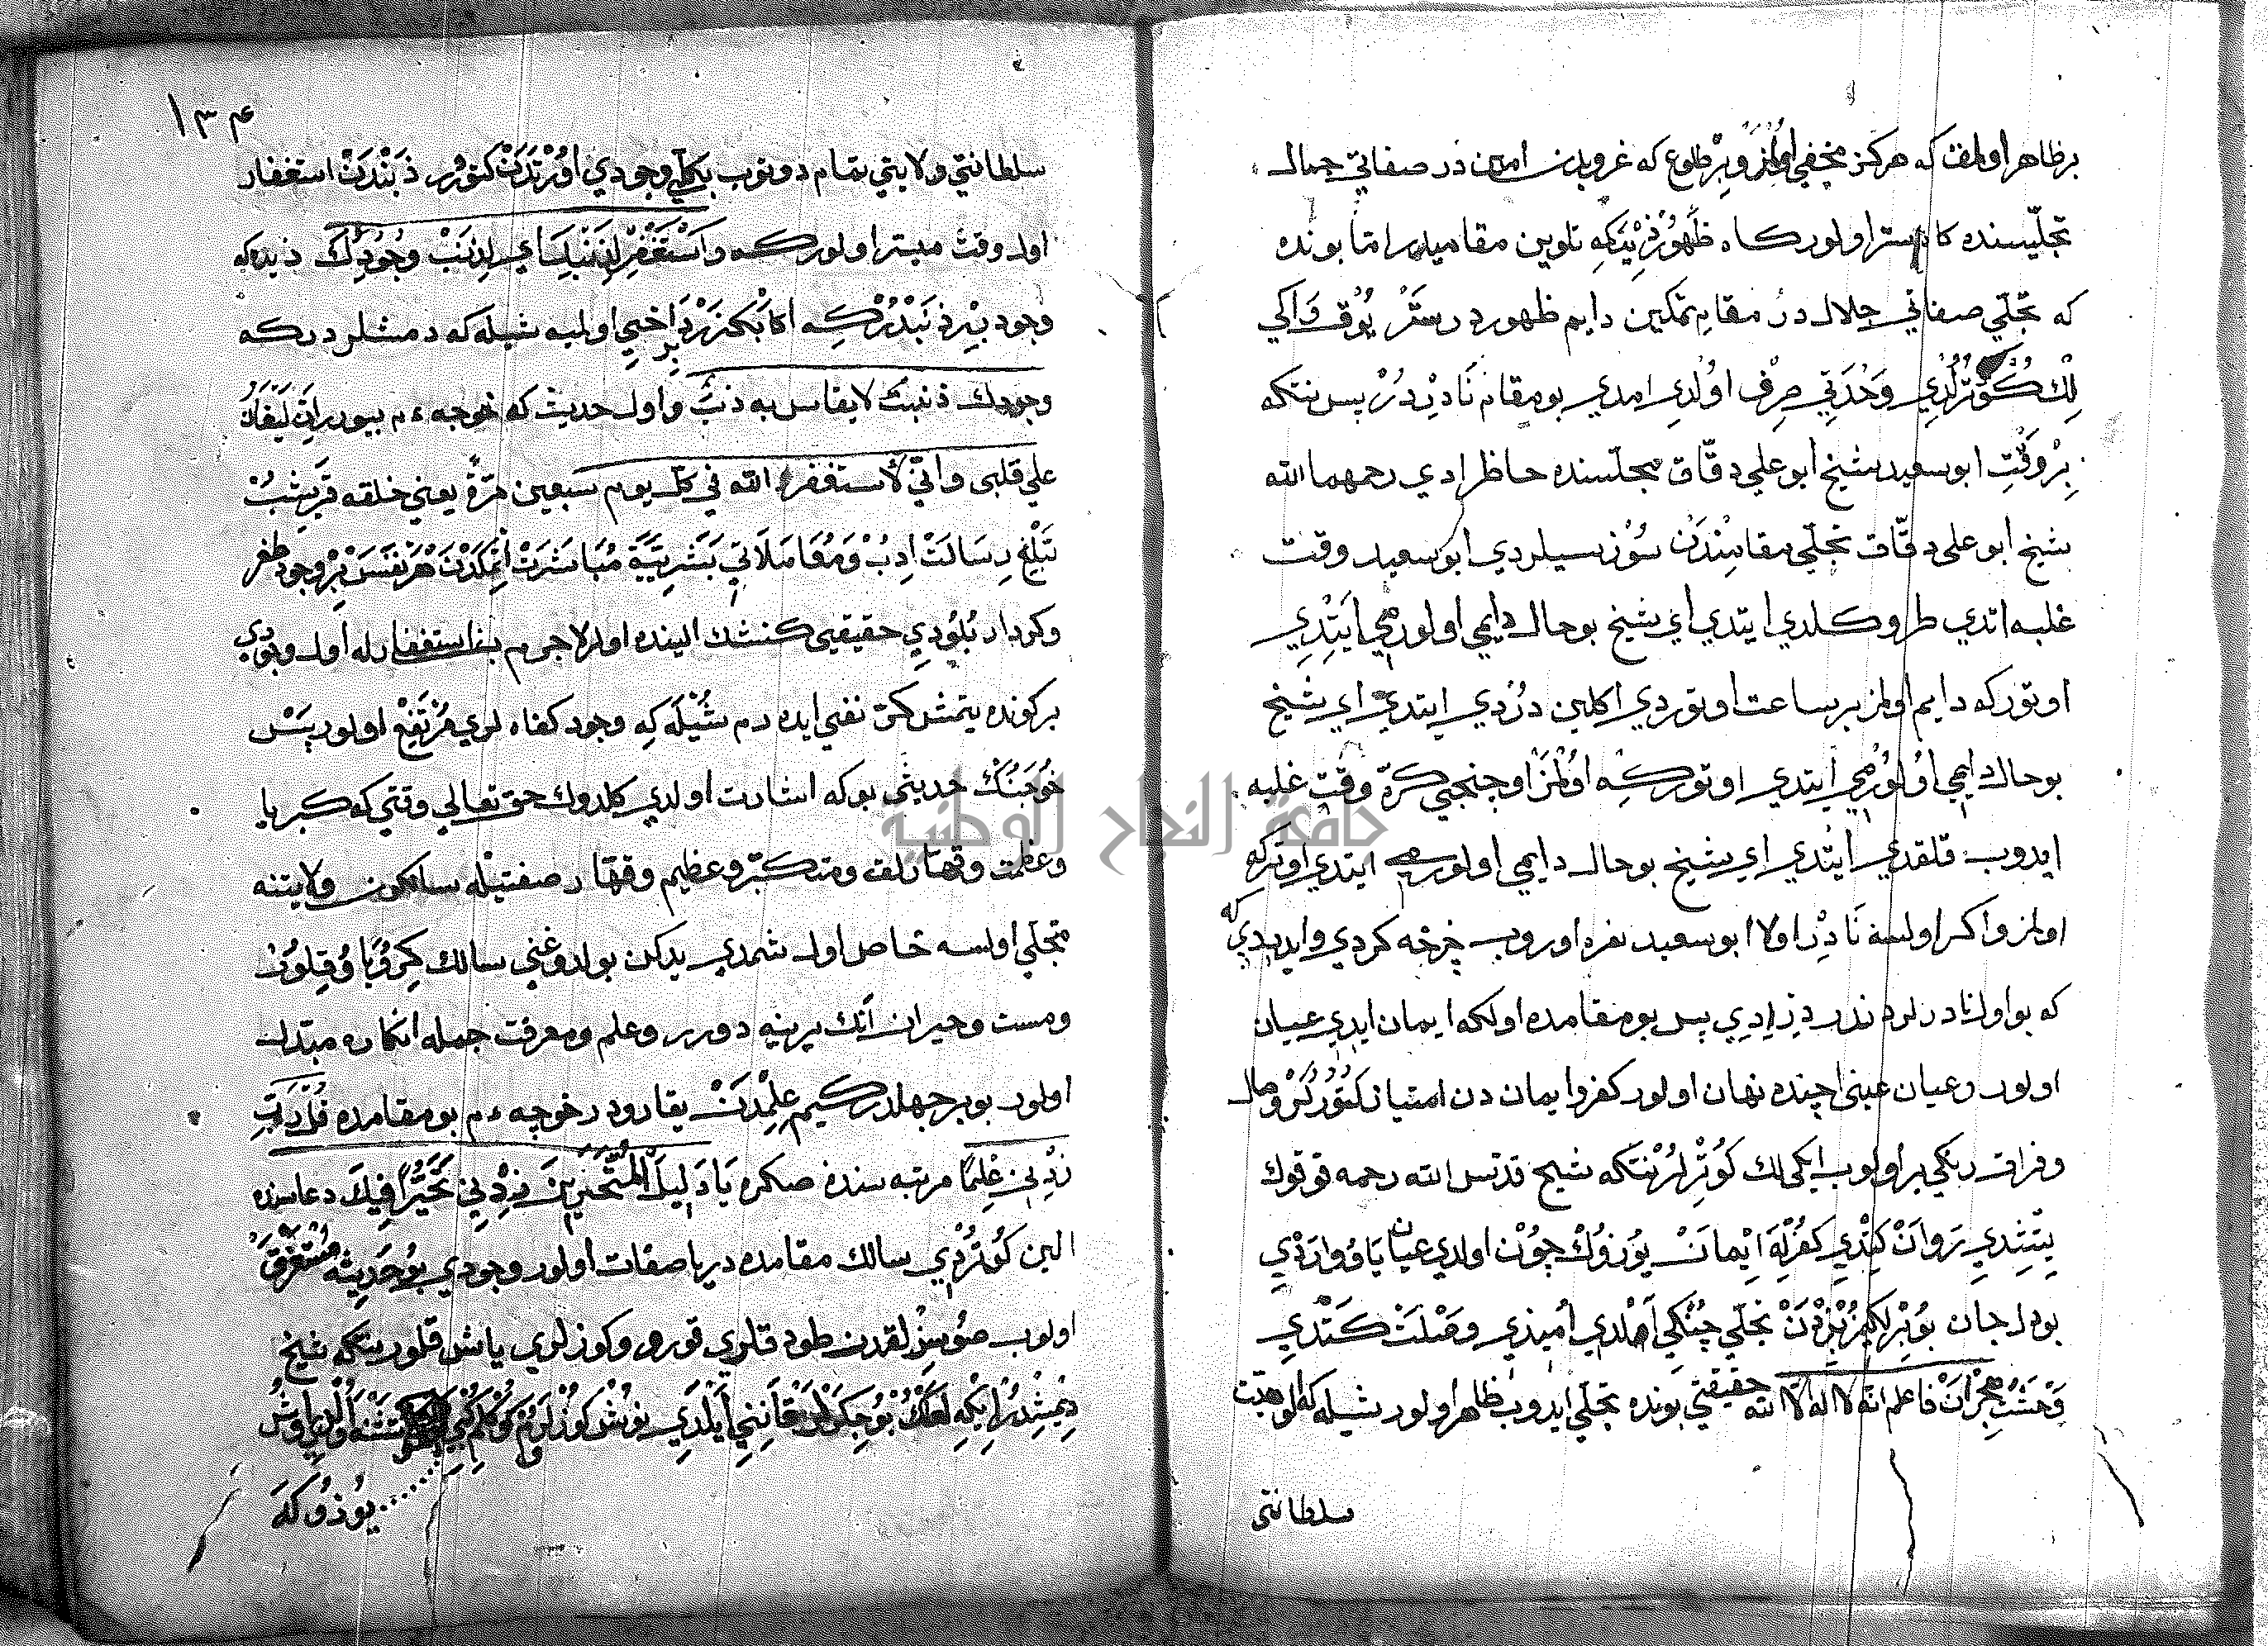 بر ظاهر اولمق كه هركز مخفي اولمز و بر طلوع كه غروبدن امين در صفاتي جمال
تجلّيسنده كاه ستر اولور كاه ظهور زيتكه تلوين مقاميدر امّا بونده
كه تجلّي صفاتي جلال در مقام تمكين دايم ظهوردر ستر يوقدر ايكي
لك كوترلدي وحدتي صرف اولدي امدي بو مقام نادردر پس نتكه
بر وقت ابو سعيد شيخ ابو علي دقّاق مجلسنده حاظر ادي رحمهما الله
شيخ ابو علي دقّاق تجلّي مقامندن سوز سيلردي ابو سعيد وقت
غلبه اتدي طرو كلدي ايتدي اي شيخ بو حال دايمي اولورمي ايتدي
اوتور كه دايم اولمز بر ساعت اوتوردي اكلين دردي ايتدي اي شيخ
بو حال دايمي اولورمي ايتدي اوتور كه اولمز اوچنجي كرّة وقت غلبه
ايدوب قلقدي ايتدي اي شيخ بو حال دايمي اولورمي ايتدي اوتركه
اولمز واكر اولسه نادر اولا ابو سعيد نعره اوروب چرخه كردي وايديدي كه
كه بو اول نادرلردندر ديزدي پس بو مقامده اولكه ايمان ايدي عيان
اولور وعيان عيني اچنده نهان اولور كفر وايمان دن امتياز كتورر وصال
وفراق رنكي بر اولوب ايكي لك كوترلر نتكه شيخ قدّس الله رحمه قوقوك
يتشدي روان كتدي كفرله ايمان يوزوك چون اولدي عيان يا و واردي
بودل جان بو بزلكمز بزدن تجلّي چنكي اهلدي اميذي وصلت كتدي
وحشت هجران فاعلم انّه لا اله الّا الله حقيقتي بونده تجلّي ايدوب ظاهر اولور شيله كه الوهيّت
سلطانتي
١٣۴
سلطانتي ولايتي تمام دوتوب بكلّي وجودي اورتدن كتورر ذنبندن استغفار
اول وقت ميستر اولور كه واستغفر لذنبك اي لذنب وجودك ديدكه
وجود بير ذنبدر كه اكا بكزر بر داخي اولميه شيله كه دمشلردركه
وجودك ذنبك لا يقاس به ذنب واول حديث كه خوجه ءم بيوررانّه ليغان
علي قلبي وانّي لاستغفر الله في كلّ يوم سبعين مرّة يعني خلقه قريشب
تبلغ رسالت ادب و معاملاتي بشريتية مباشرت اتمكدن هر نفس بر وجود ظفر
وكردار بلودي حقيقي كنشك الينده اولر لا جرم بن استغفارله اول وجودي
بر كونده يتمش كرّ نفي ايده رم شيله كه وجود كفاه لري مرتفع اولور پس
خوجنك حديثي بو كه اشارت اولدي كلدوك حق تعالي وقتي كه كبريا
وعظمت وقهّارلق ومتكبّر وعظيم وقهّار صفتيله سالكون ولايتنه
متجلّي اولسه خاصل اول شمدي يدكن بولدوغني سالك كرو يا و قلور
ومست وحيران انك يرينه دورر وعلم ومعرفت جمله انكاره مبتدل
اولور بو بر جهلدركيم علمدن يقارودر خوجه ءم بو مقامده قل ربّ
زدني علما مرتبه سندن صكره يا دليل المتحيّرين زدني تحيّرا فيك دعاسنده
الين كوتردي سالك مقامده درياصفات اولور وجودي بو حديثه مستغرق
اولوب صوسزلقدن طوداقلري قورو وكوزلري ياش قلور نتكه شيخ
ديمشدر ايكه لعلك بو جكر قانني ايلدي نوش كوزلرم
يوزوكه